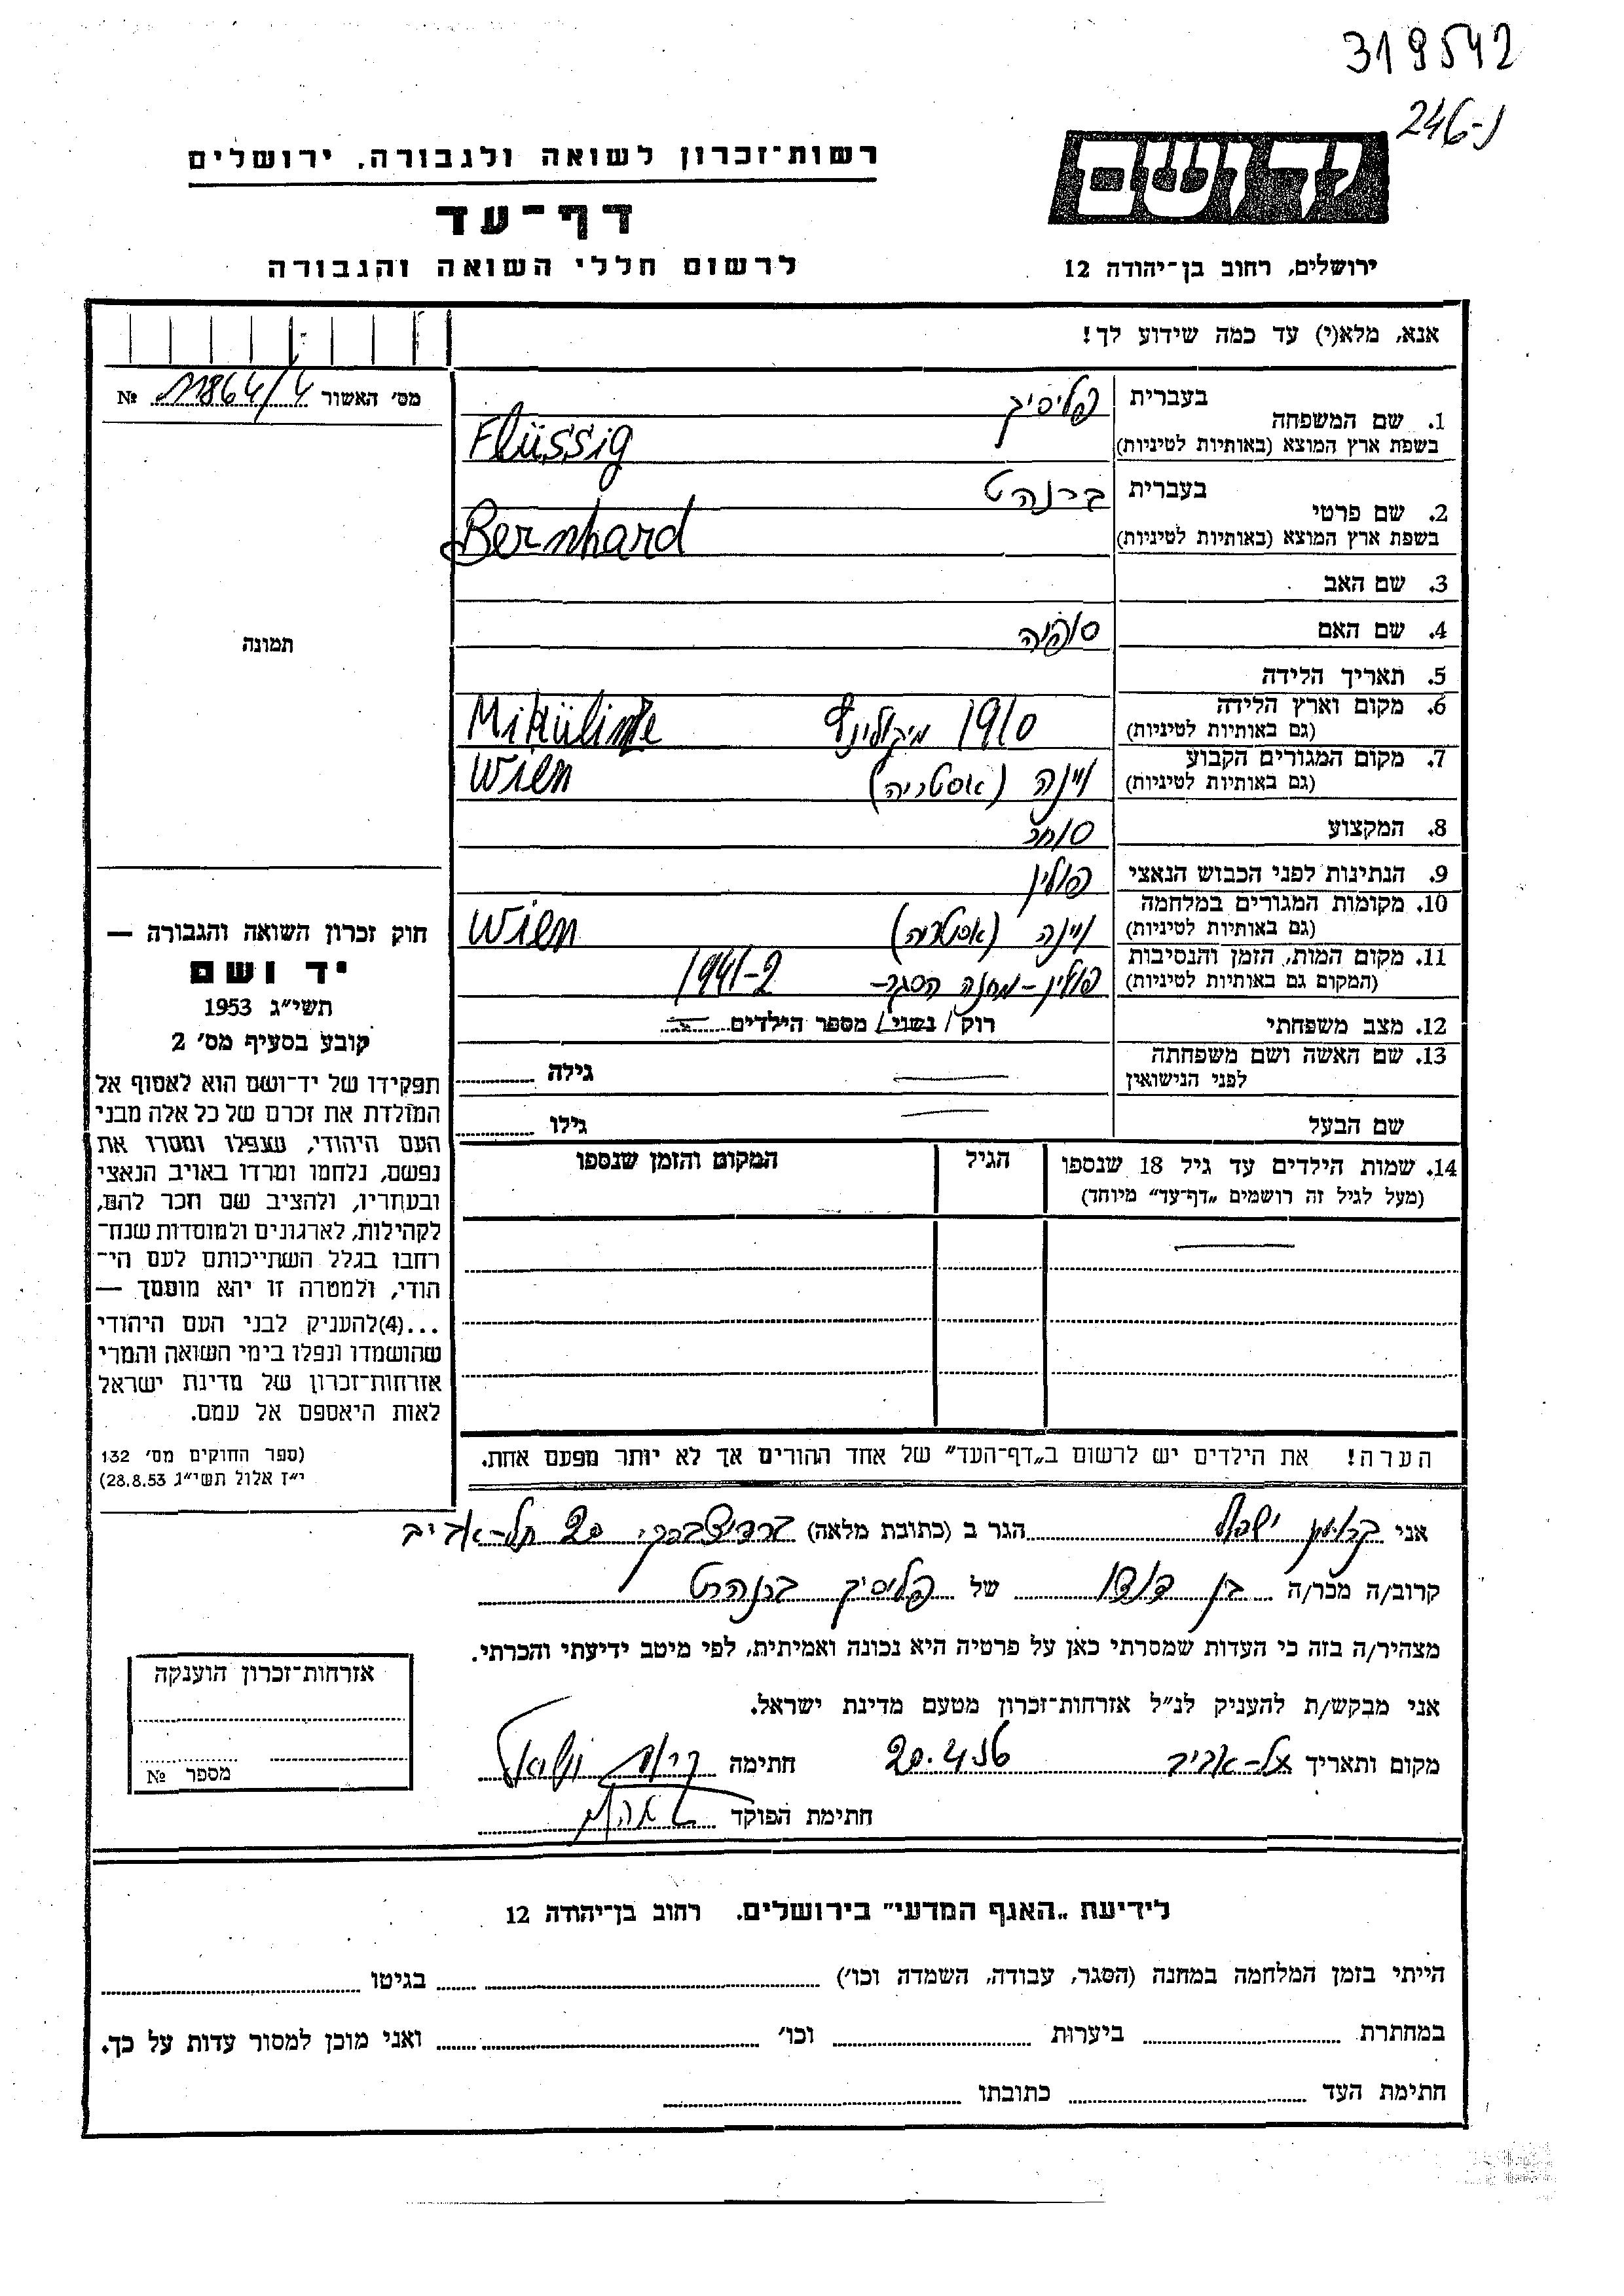 319542
246-נ
יד ושם
רשות־זכרון לשואה ולגבורה, ירושלים
דף־עד
לרשום חללי השואה והגבורה
ירושלים, רחוב בן־יהודה 12
אנא, מלא(י) עד כמה שידוע לך!
מס׳ האשור 11864/4 №
תמונה
1. שם המשפחה
בעברית פליסיג
בשפת ארץ המוצא (באותיות לטיניות) Flüssig
2. שם פרטי
בעברית ברנהט
בשפת ארץ המוצא (באותיות לטיניות) Bernhard
3. שם האב
4. שם האם סופיה
5. תאריך הלידה
6. מקום וארץ הלידה
(גם באותיות לטיניות) 1910
7. מקום המגורים הקבוע
(גם באותיות לטיניות) וינה (אוסטריה) Wien
8. המקצוע סוחר
9. הנתינות לפני הכבוש הנאצי פולין
10. מקומות המגורים במלחמה
(גם באותיות לטיניות) וינה (אוסטריה) Wien
11. מקום המות, הזמן והנסיבות
(המקום גם באותיות לטיניות) פולין - מחנה הסגר - 1941-2
12. מצב משפחתי רוק / נשוי / מספר הילדים
13. שם האשה ושם משפחתה
לפני הנישואין גילה
שם הבעל גילו
14. שמות הילדים עד גיל 18 שנספו
(מעל לגיל זה רושמים „דף־עד״ מיוחד)
הגיל
המקום והזמן שנספו
חוק זכרון השואה והגבורה —
יד ושם
תשי״ג 1953
קובע בסעיף מס׳ 2
תפקידו של יד־ושם הוא לאסוף אל
המולדת את זכרם של כל אלה מבני
העם היהודי, שנפלו ומסרו את
נפשם, נלחמו ומרדו באויב הנאצי
ובעוזריו, ולהציב שם וזכר להם,
לקהילות, לארגונים ולמוסדות שנח־
רבו בגלל השתייכותם לעם הי־
הודי, ולמטרה זו יהא מוסמך —
...(4)להעניק לבני העם היהודי
שהושמדו ונפלו בימי השואה והמרי
אזרחות־זכרון של מדינת ישראל
לאות היאספם אל עמם.
(ספר החוקים מס׳ 132
י״ז אלול תשי״ג 28.8.53)
הערה! את הילדים יש לרשום ב„דף־העד״ של אחד ההורים אך לא יותר מפעם אחת.
אני ישראל הגר ב (כתובת מלאה) 20 תל-אביב
קרוב/ה מכר/ה בן דודו של פליסיג ברנהרט
מצהיר/ה בזה כי העדות שמסרתי כאן על פרטיה היא נכונה ואמיתית, לפי מיטב ידיעתי והכרתי.
אני מבקש/ת להעניק לנ״ל אזרחות־זכרון מטעם מדינת ישראל.
מקום ותאריך תל-אביב 20.4.56 חתימה
חתימת הפוקד
אזרחות־זכרון הוענקה
מספר №
לידיעת „האגף המדעי״ בירושלים. רחוב בן־יהודה 12
הייתי בזמן המלחמה במחנה (הסגר, עבודה, השמדה וכו׳) בגיטו
במחתרת ביערות וכו׳ ואני מוכן למסור עדות על כך.
חתימת העד כתובתו